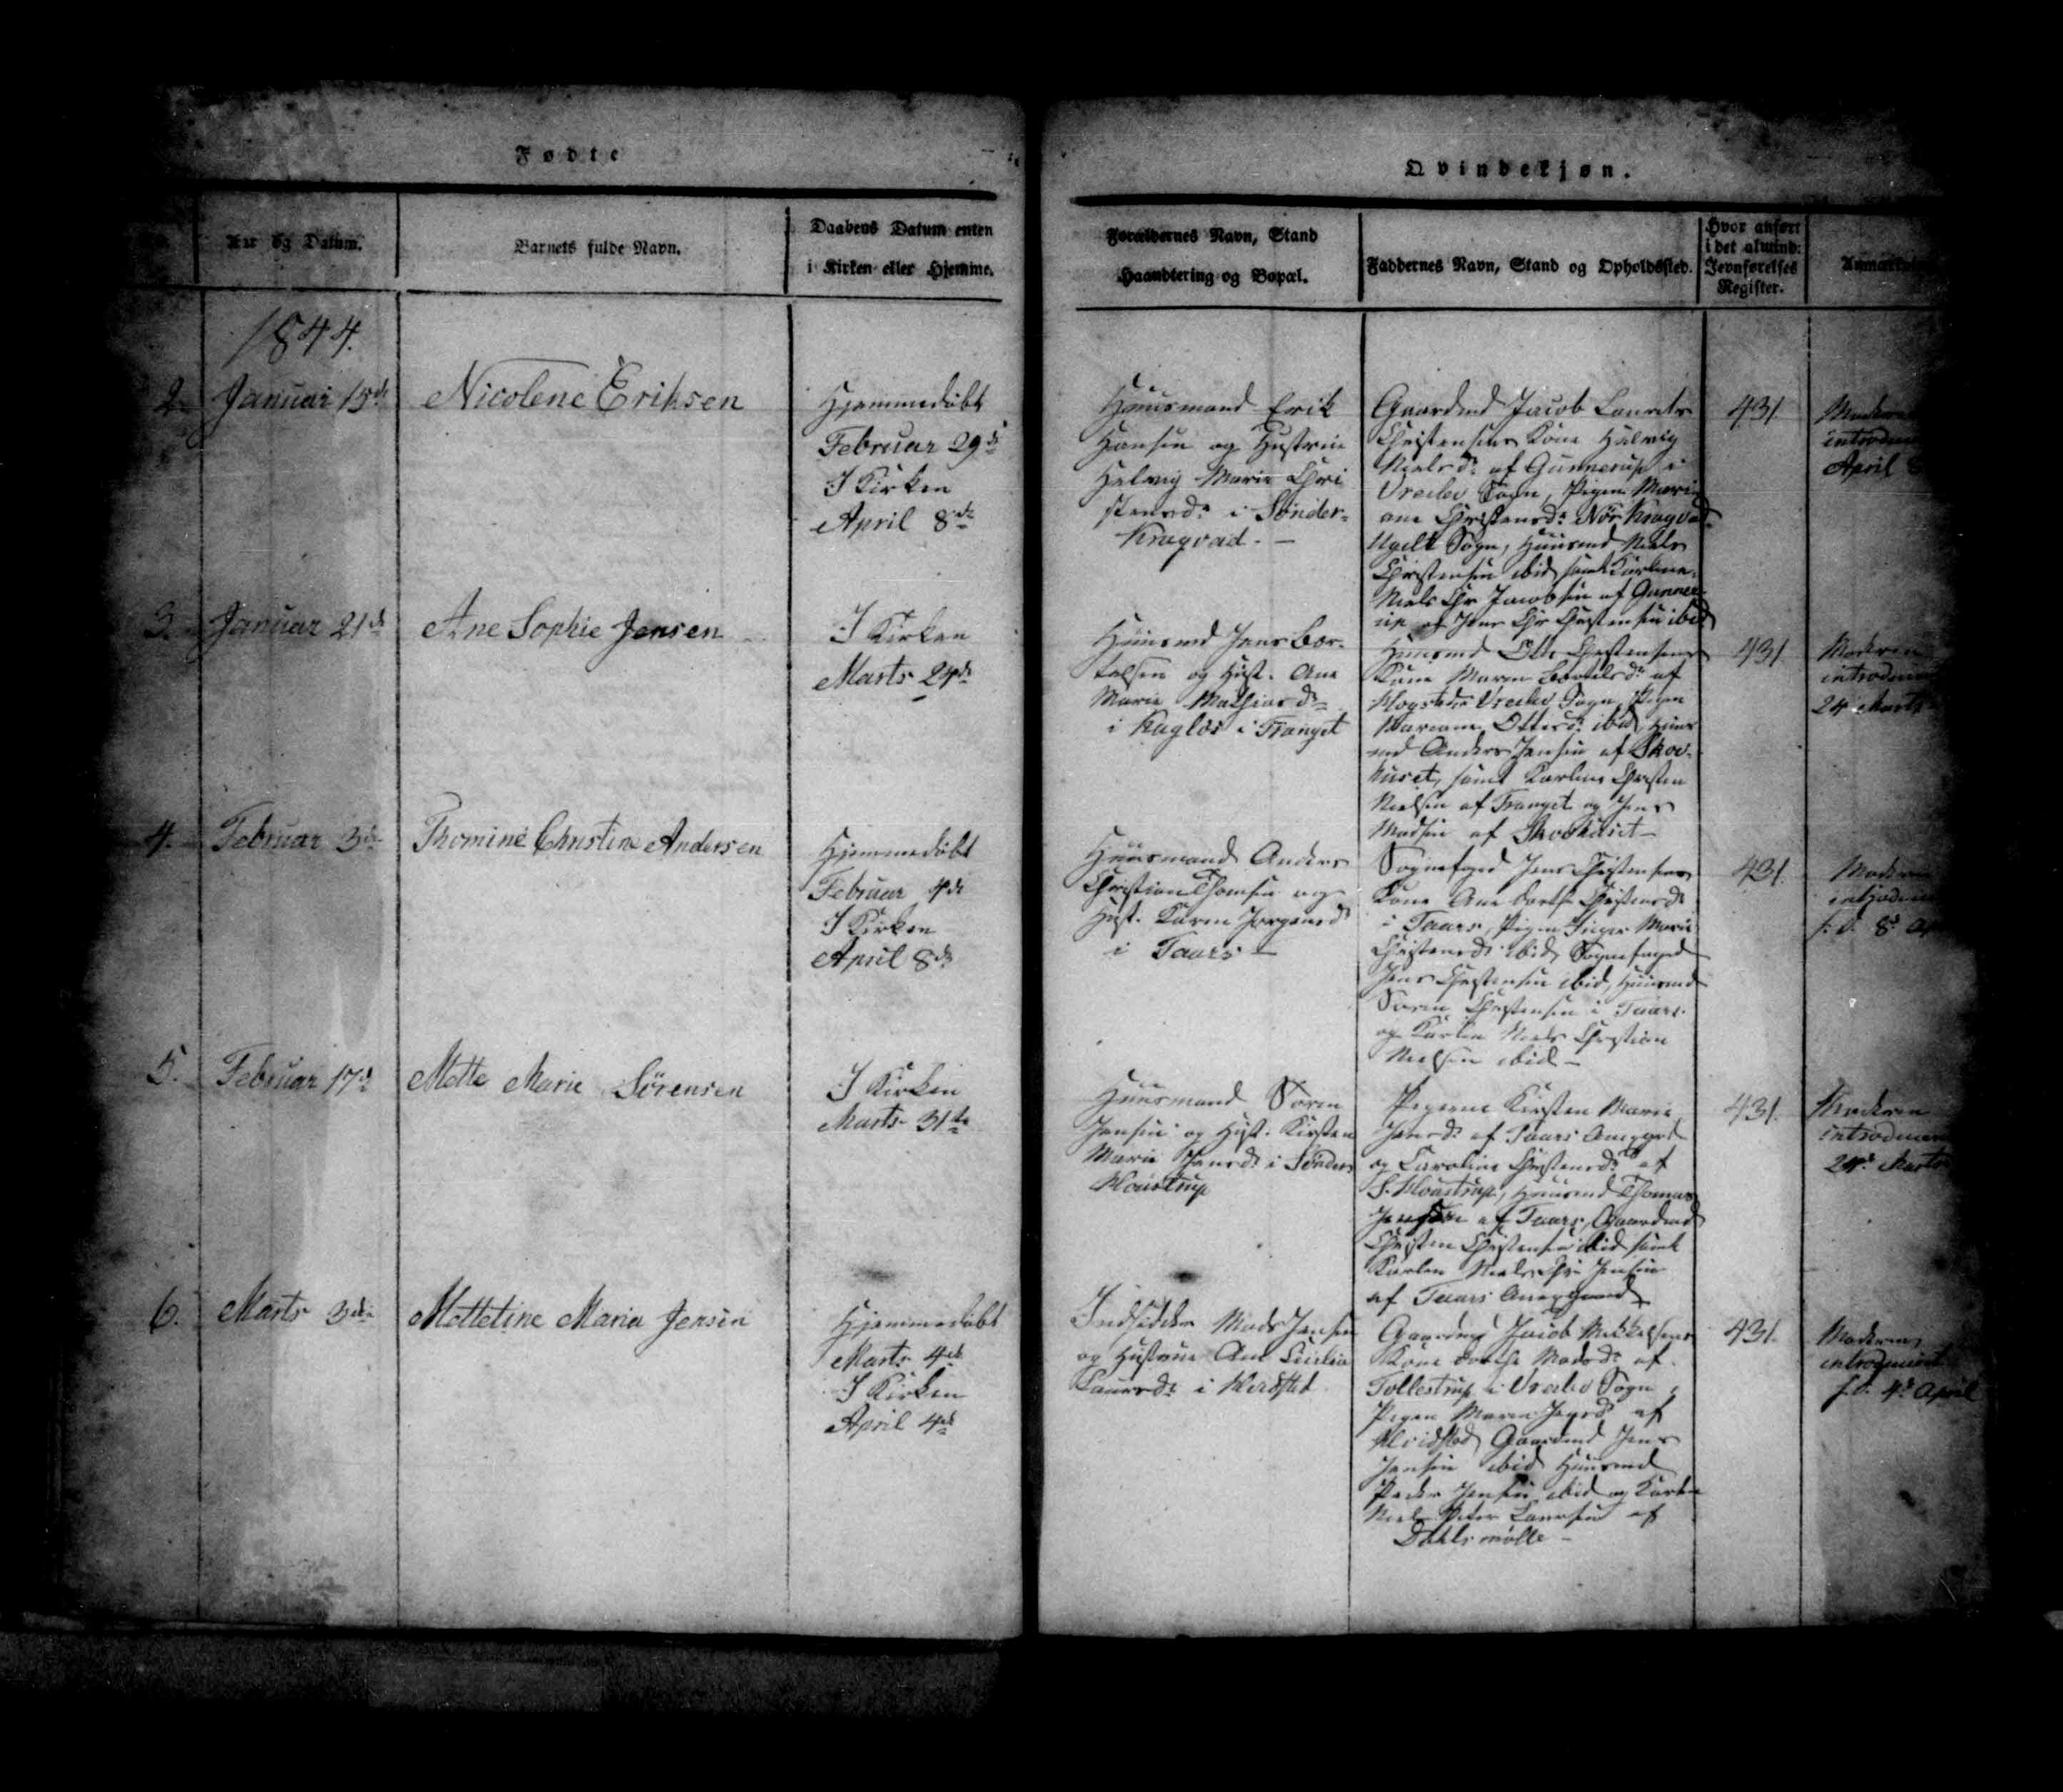 Fødte
Qvindekjøn.
Aar og Datum.
Barnets fulde Navn.
Daabens Datum enten
i Kirken eller Hjemme.
Forældrenes Navn, Stand
Haandtering og Bopæl.
Faddernes Navn, Stand og Opholdssted.
Hvor anført
i det almind:
Jevnførelses
Register.
1844.
2.
Januar 15de
Nicolene Eriksen
Hjemmedøbt
Februar 29de
I Kirken
April 8de
Huusmand Erik
Hansen og Hustrue
Helvig Marie Chri
stensd: i Sønder-
Kragvad. —
Gaardmd Jacob Laurits
Christensens Kone Helvig
Nielsd: af Gunnerup i
Vreilev Sogn, Pigen Mari
ane Christensd: Nør Kragvad
Ugilt Sogn, Huusmd Niels
Christensen ibid samt Karlene
Niels Chr Jacobsen af Gunner
up og Jens Chr Christensen ibid
431
Moderen
introduc
April 8
3.
Januar 21de
Ane Sophie Jensen
I Kirken
Marts 24de
Huusmd Jens Ber-
telsen og Hust. Ane
Marie Mathiasd:
i Kugløs i Tranget
Huusmd Otto Christensens
Kone Maren Bertelsd: af
Vreilev Sogn, Pigen
Mariane Ottosd: ibid, Huus
md Anders Jensen af Skov-
huset, samt Karlene Christen
Nielsen af Tranget og Jens
Madsen af Skovhuset —
431
Moderen
introduc
24 Marts
4.
Februar 3de
Thomine Christine Andersen
Hjemmedøbt
Februar 4de
I Kirken
April 8de
Huusmand Anders
Christian Thomsen og
Hust. Karen Jørgensd:
i Taars —
Sognefoged Jens Christensens
Kone Ane Dorthe Christensd:
i Taars, Pigen Inger Marie
Christensd: ibid, Sognefoged
Jens Christensen ibid, Huusmd
Søren Christensen i Taars
og Karlen Niels Christian
Nielsen ibid —
431
Moderen
introduc
8de Ap
5.
Februar 17de
Mette Marie Sørensen
I Kirken
Marts 31te
Huusmand Søren
Jensen og Hust. Kirsten
Marie Jensd: i Sønder
Houstrup
Pigerne Kirsten Marie
Jensd: af Taars Amgard
og Caroline Christensd: af
S. Houstrup, Huusmd Thomas
Jensen af Taars, Gaardmd
Christen Christensen ibid samt
Karlen Niels Chr Jensen
af Taars
431.
Moderen
introducer
24de Marts
6.
Marts 3die
Mettetine Maria Jensen
Hjemmedøbt
Marts 4de
I Kirken
April 4de
Indsidder Mads Jensen
og Hustrue Ane Cicilie
Laursd: i Hvidsted
Gaardmd Jacob Mikkelsens
Kone Dorthe Madsd: af
Tollestrup i Vreilev Sogn,
Pigen Maren af
Hvidsted, Gaardmd Jens
Jensen ibid Huusmd
Peder Jensen ibid og Karlen
Niels Peter Laursen af
Dahls mølle —
431.
Moderen
introduceret
4de April